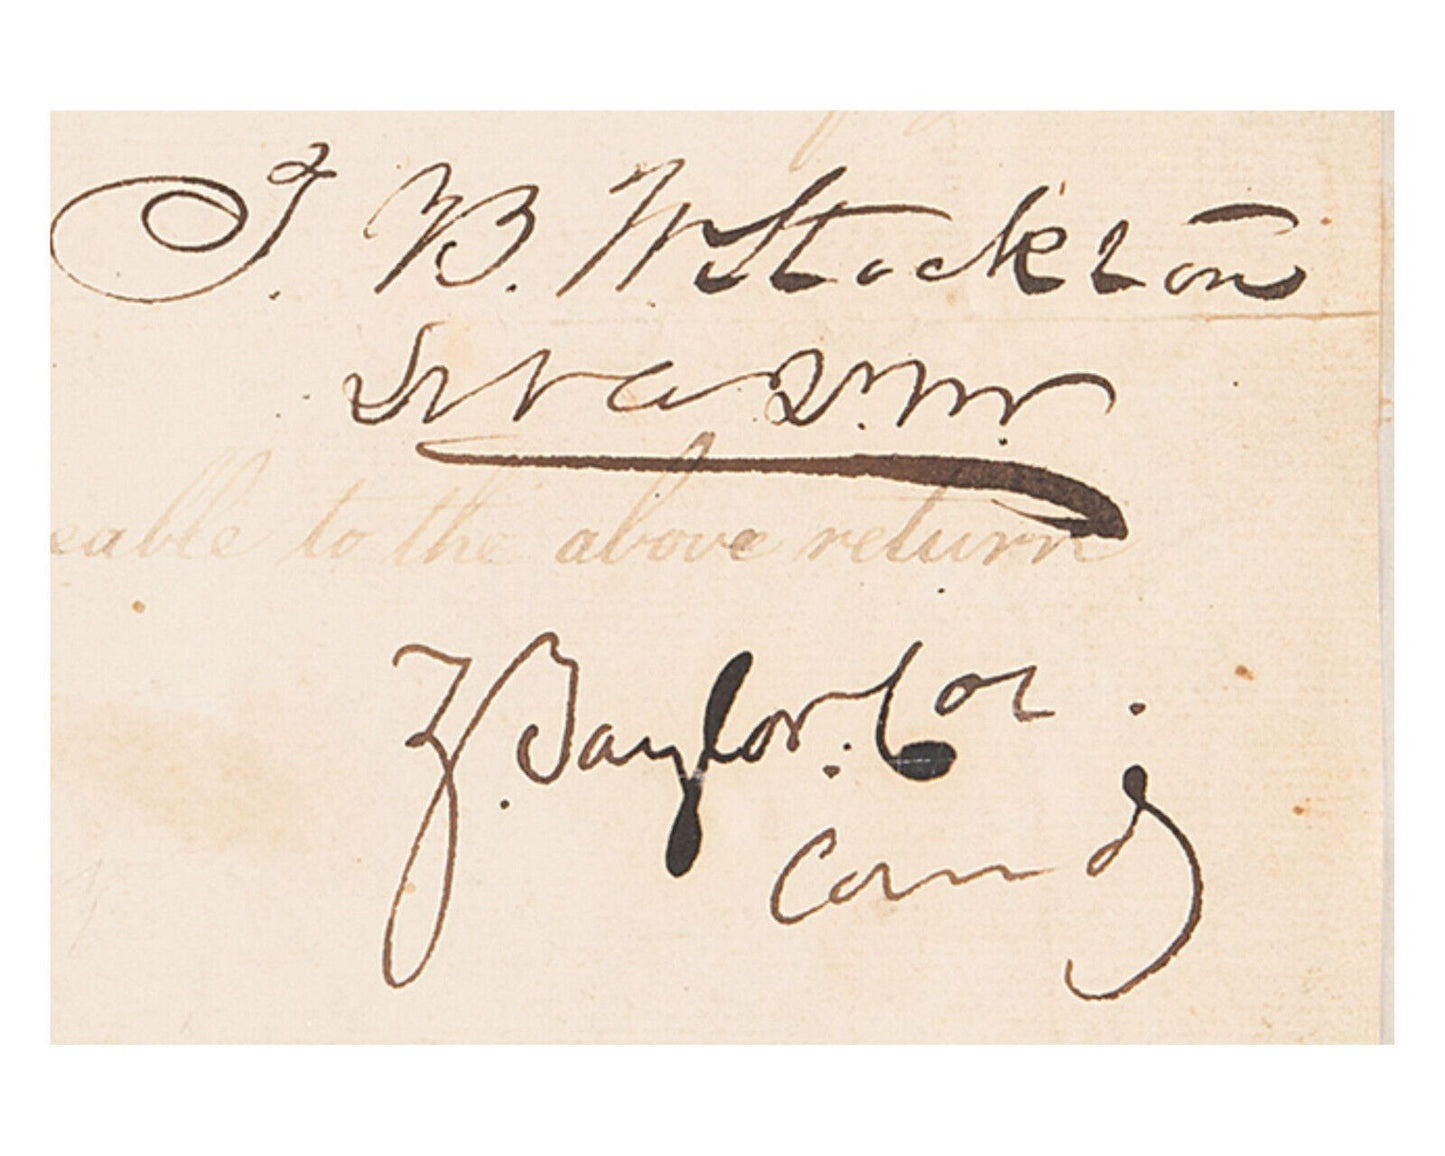 T. B. W. Stockton
Lt & A. Q. M.
eable to the above return
Z. Taylor. Col.
Comd